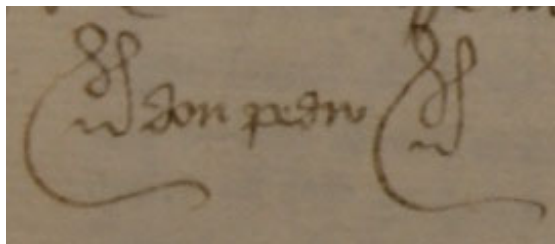 don pedro